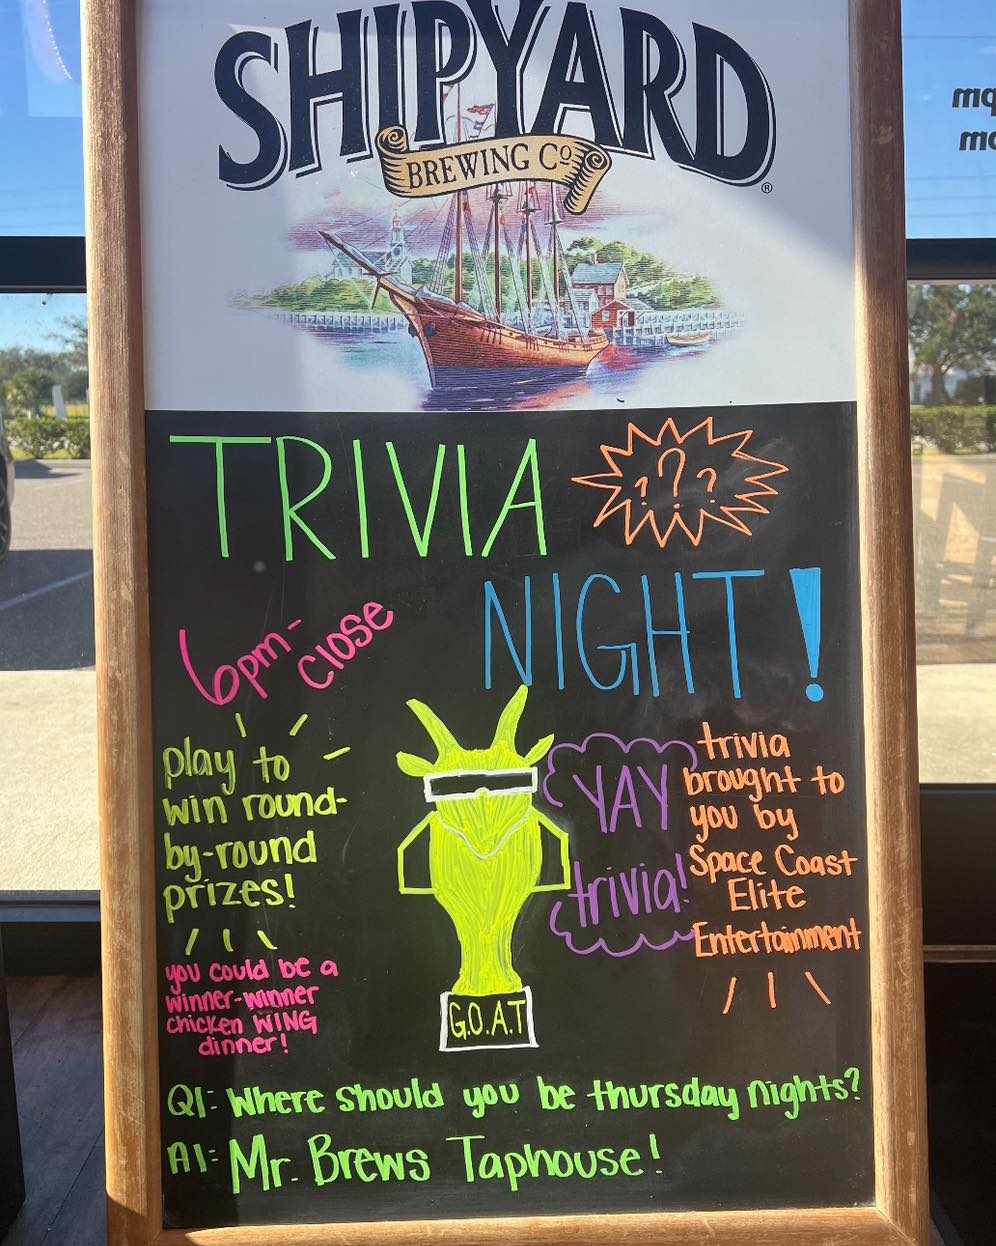 SHIPYARD
BREWING Co
®
TRIVIA
???
NIGHT!
6pm-
close
play to
win round-
by-round
prizes!
you could be a
winner-winner
chicken WING
dinner!
YAY
trivia!
trivia
brought to
you by
Space Coast
Elite
Entertainment
G.O.A.T
Q1: Where should you be thursday nights?
A1: Mr. Brews Taphouse!